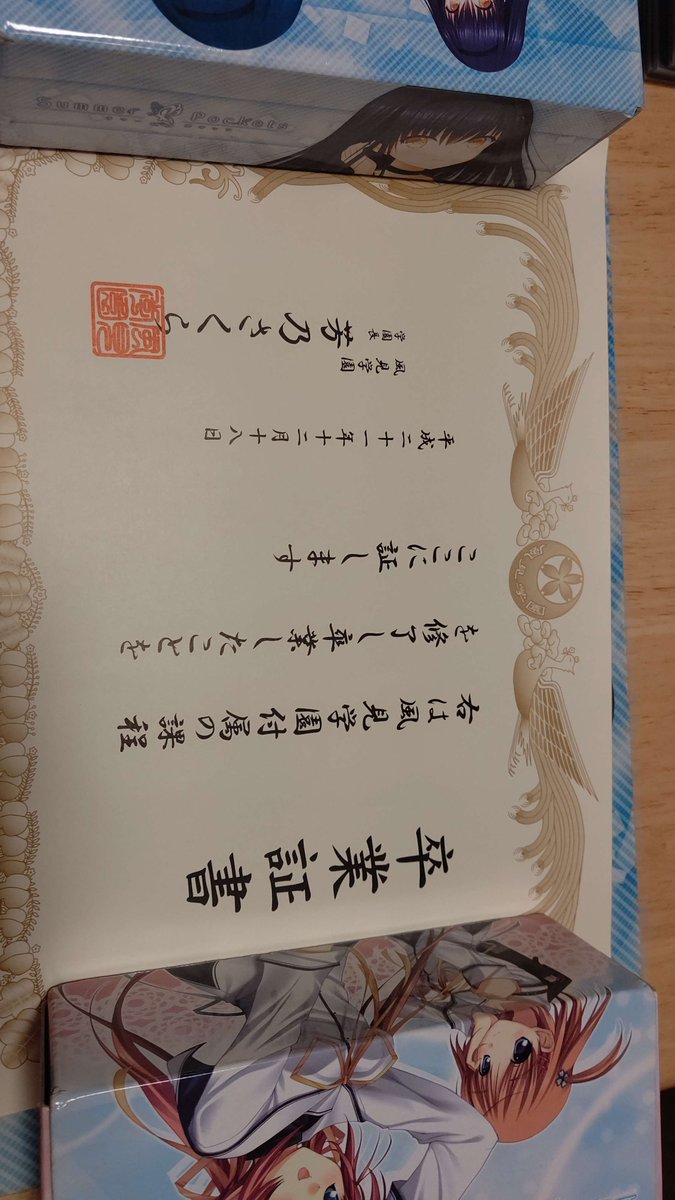 卒業証書
右は風見学園付属の課程
を修了し卒業したことを
ここに証します
平成二十一年十二月十八日
風見学園
学園長 芳乃さくら
風見学園
Summer Pockets